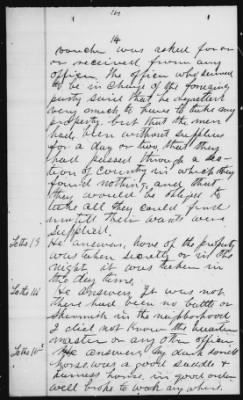 14
voucher was asked for or
or received from any
officer. The officer who seemed
to be in charge of the foraging
party said that he regretted
very much to have to take any
property, but that the men
had been without supplies
for a day or two, that they
had passed through a sec-
tion of country in which they
found nothing, and that
they would be obliged to
take all they could find
until their wants were
supplied.
To the 13 He answers, None of the property
was taken secretly or in the
night, it was taken in
the day time.
To the 14 He answers, It was not
there had been no battle or
skirmish in the neighborhood
I did not know the quarter
master or any other officer.
To the 15 He answers, My dark sorrel
horse was a good saddle &
harness horse, in good order
well broke to work any where.